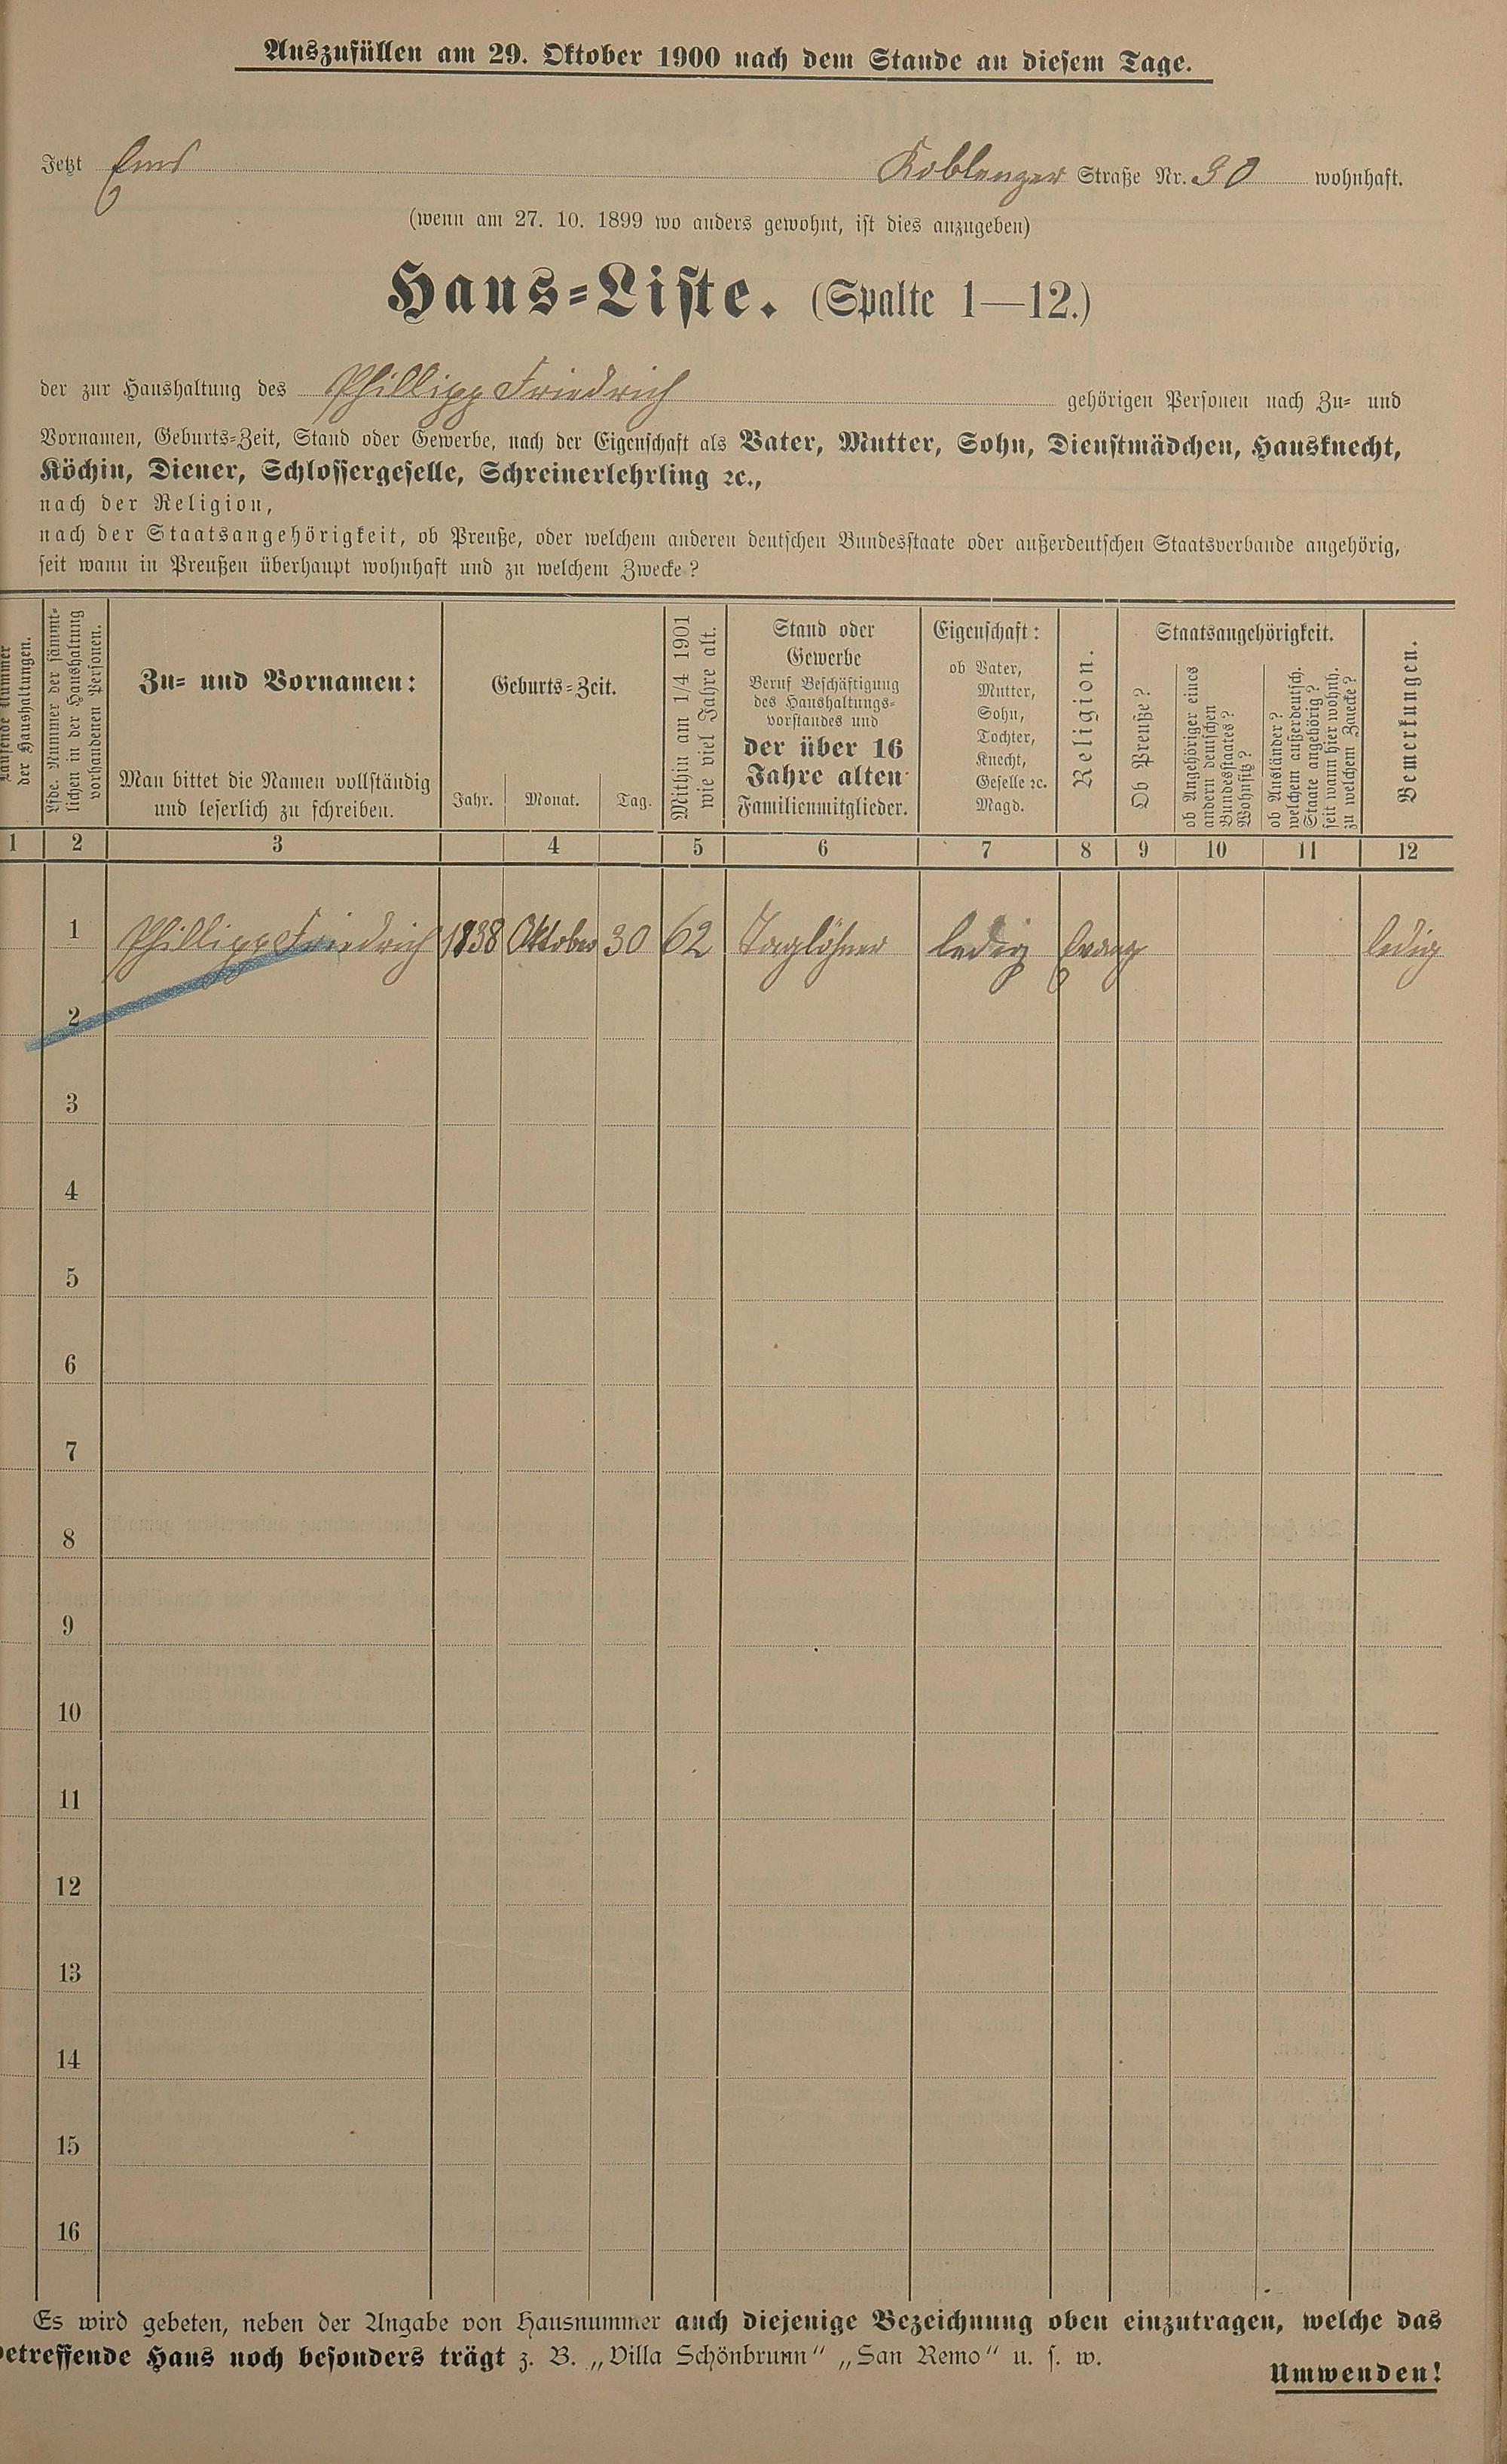 Auszufüllen am 29. Oktober 1900 nach dem Stande an diesem Tage.
Jetzt Ems Koblenzer Straße Nr. 30 wohnhaft.
(wenn am 27. 10. 1899 wo anders gewohnt, ist dies anzugeben)
Haus=Liste. (Spalte 1—12.)
der zur Haushaltung des Phillipp Friedrich gehörigen Personen nach Zu= und
Vornamen, Geburts=Zeit, Stand oder Gewerbe, nach der Eigenschaft als Vater, Mutter, Sohn, Dienstmädchen, Hausknecht,
Köchin, Diener, Schlossergeselle, Schreinerlehrling ꝛc.,
nach der Religion,
nach der Staatsangehörigkeit, ob Preuße, oder welchem anderen deutschen Bundesstaate oder außerdeutschen Staatsverbande angehörig,
seit wann in Preußen überhaupt wohnhaft und zu welchem Zwecke?
Laufende Nummer
der Haushaltungen.
Lfde. Nummer der sämmt=
lichen in der Haushaltung
vorhandenen Personen.
Zu= und Vornamen:
Man bittet die Namen vollständig
und leserlich zu schreiben.
Geburts=Zeit.
Jahr. Monat. Tag.
Mithin am 1/4 1901
wie viel Jahre alt.
Stand oder
Gewerbe
Beruf Beschäftigung
des Haushaltungs=
vorstandes und
der über 16
Jahre alten
Familienmitglieder.
Eigenschaft:
ob Vater,
Mutter,
Sohn,
Tochter,
Knecht,
Geselle ꝛc.
Magd.
Religion.
Staatsangehörigkeit.
Ob Preuße?
ob Angehöriger eines
andern deutschen
Bundesstaates?
Wohnsitz?
ob Ausländer?
welchem außerdeutsch.
Staate angehörig?
seit wann hier wohnh.
zu welchem Zwecke?
Bemerkungen.
1 2 3 4 5 6 7 8 9 10 11 12
1 Phillipp Friedrich 1838 Oktober 30 62 Taglöhner ledig Evang ledig
2
3
4
5
6
7
8
9
10
11
12
13
14
15
16
Es wird gebeten, neben der Angabe von Hausnummer auch diejenige Bezeichnung oben einzutragen, welche das
betreffende Haus noch besonders trägt z. B. „Villa Schönbrunn" „San Remo" u. s. w.
Umwenden!